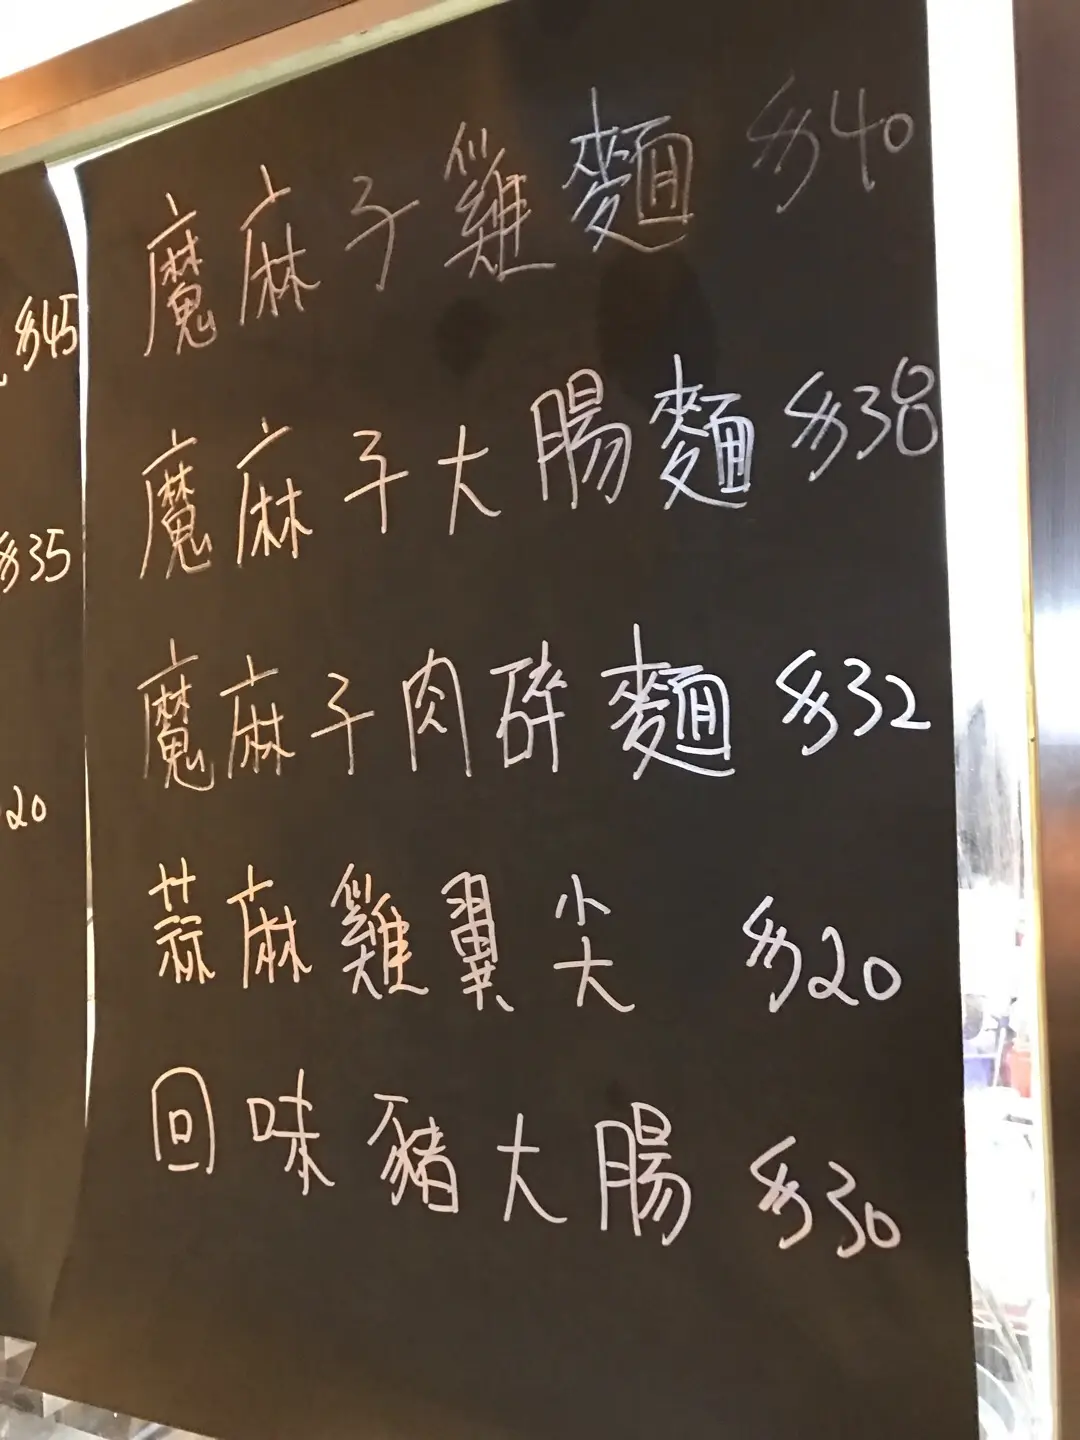 $45
$35
20
魔麻子雞麵 $40
魔麻子大腸麵 $38
魔麻子肉碎麵 $32
蒜麻雞翼尖 $20
回味豬大腸 $30